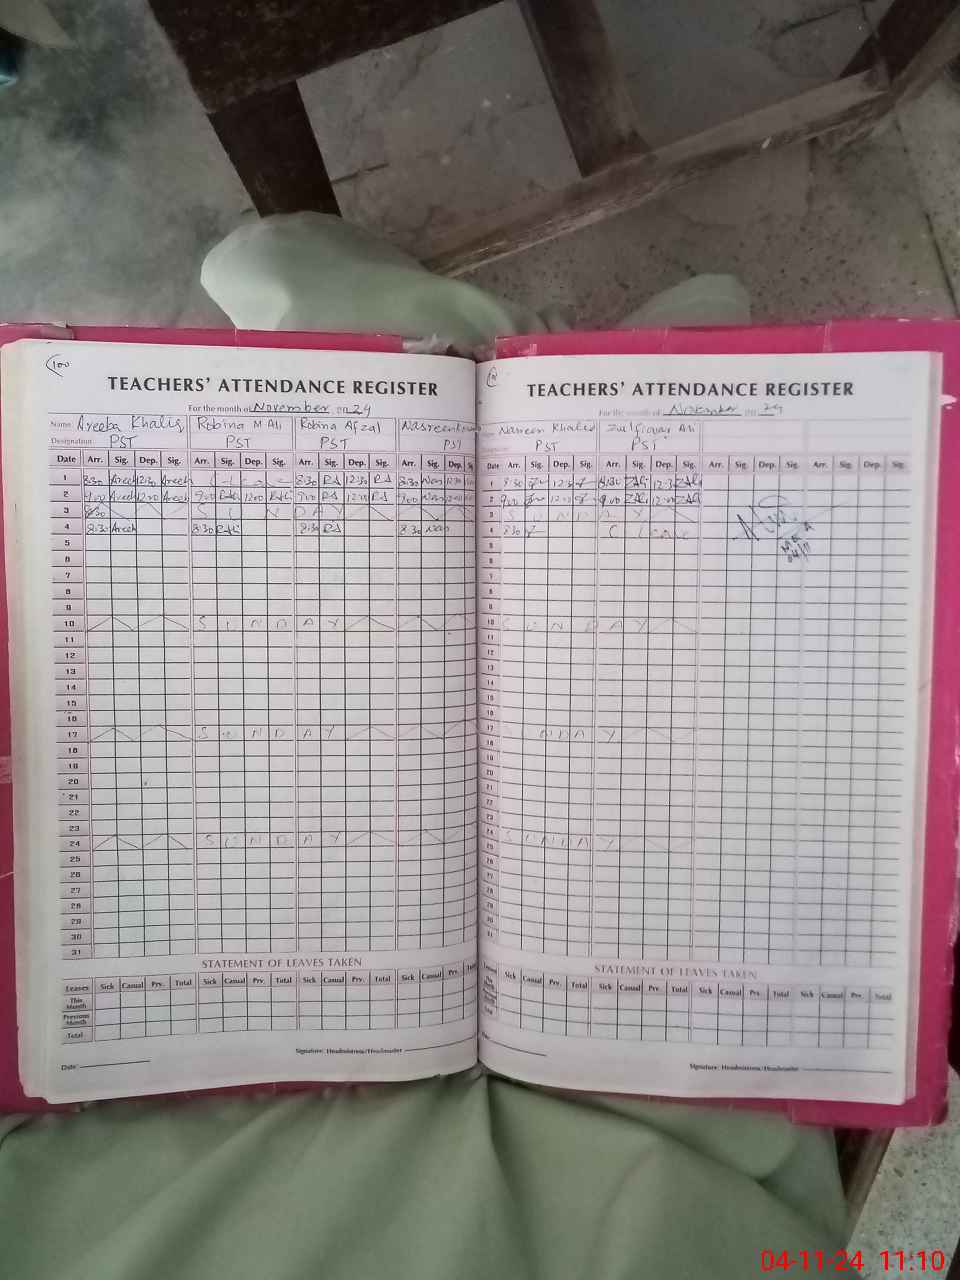 100
TEACHERS' ATTENDANCE REGISTER
For the month of November 2024
Name: Areeba Khaliq Robina M Ali Robina Afzal
Designation: PST PST PST PST
Date Arr. Sig. Dep. Sig. Arr. Sig. Dep. Sig. Arr. Sig. Dep. Sig. Arr. Sig. Dep. Sig.
1 8:30 Areeb 12:30 Areeb 8:30 RA 12:30 RA 8:30 Nas 12:30
2 9:00 Areeb 12:00 Areeb 9:00 12:00 9:00 RA 12:00 RA 9:00 Nas 12:00
3 SUNDAY
4 8:30 Areeb 8:30 8:30 RA 8:30 Nas
5
6
7
8
9
10 SUNDAY
11
12
13
14
15
16
17 SUNDAY
18
19
20
21
22
23
24 SUNDAY
25
26
27
28
29
30
31
STATEMENT OF LEAVES TAKEN
Leaves Sick Casual Prv. Total Sick Casual Prv. Total Sick Casual Prv. Total Sick Casual Prv. Total
This Month
Previous Month
Total
Signature: Headmistress/Headmaster
Date:
TEACHERS' ATTENDANCE REGISTER
For the month of November 2024
Nasreen Khalid Zulfiqar Ali
PST PST
Date Arr. Sig. Dep. Sig. Arr. Sig. Dep. Sig. Arr. Sig. Dep. Sig. Arr. Sig. Dep. Sig.
1 8:30 12:30 8:30 ZAli 12:30 ZAli
2 9:00 12:00 9:00 ZAli 12:00 ZAli
3 SUNDAY
4 8:30
5
6
7
8
9
10 SUNDAY
11
12
13
14
15
16
17 SUNDAY
18
19
20
21
22
23
24 SUNDAY
25
26
27
28
29
30
31
MEA
04/11
STATEMENT OF LEAVES TAKEN
Sick Casual Prv. Total Sick Casual Prv. Total Sick Casual Prv. Total Sick Casual Prv. Total
Signature: Headmistress/Headmaster
04-11-24 11:10